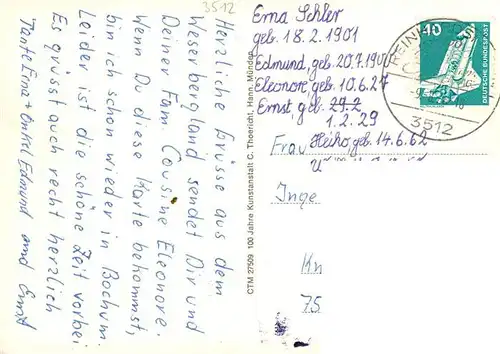 3512
Herzliche Grüsse aus dem
Weserbergland sendet Dir und
Deiner Fam Cousine Eleonore.
Wenn Du diese Karte bekommst,
bin ich schon wieder in Bochum.
Leider ist die schöne Zeit vorbei.
Es grüsst auch recht herzlich
Tante Erna + Onkel Edmund und Ernst
CTM 27509 100 Jahre Kunstanstalt C. Theericht, Hann. Münden
Erna Sehler
geb. 18.2.1901
Edmund, geb. 20.7.1900
Eleonore, geb. 10.6.27
Ernst, geb. 29.2
1.2.29
Heiko, geb. 14.6.62
Frau
u
Inge
Kn
75
40
DEUTSCHE BUNDESPOST
3512